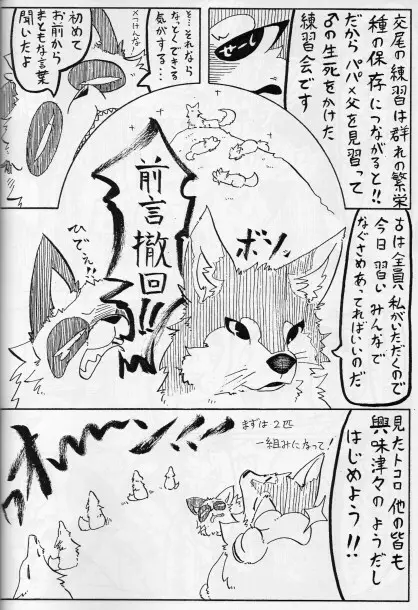 交尾の練習は群れの繁栄
種の保存につながると!!
だから パパ×父を見習って
♂の生死をかけた
練習会です
せーし
そ…それなら
なっとくできる
気がする…
メっけんな
初めて
お前から
まともな言葉
聞いたよ
♀は全員私がいただくので
今日習い みんなで
なぐさめあってればいいのだ
ボソ
前言撤回!!
ひでえ!!
見たトコロ 他の皆も
興味津々のようだし
はじめよう!!
まずは2匹
一組みになって!
オーーン!!!